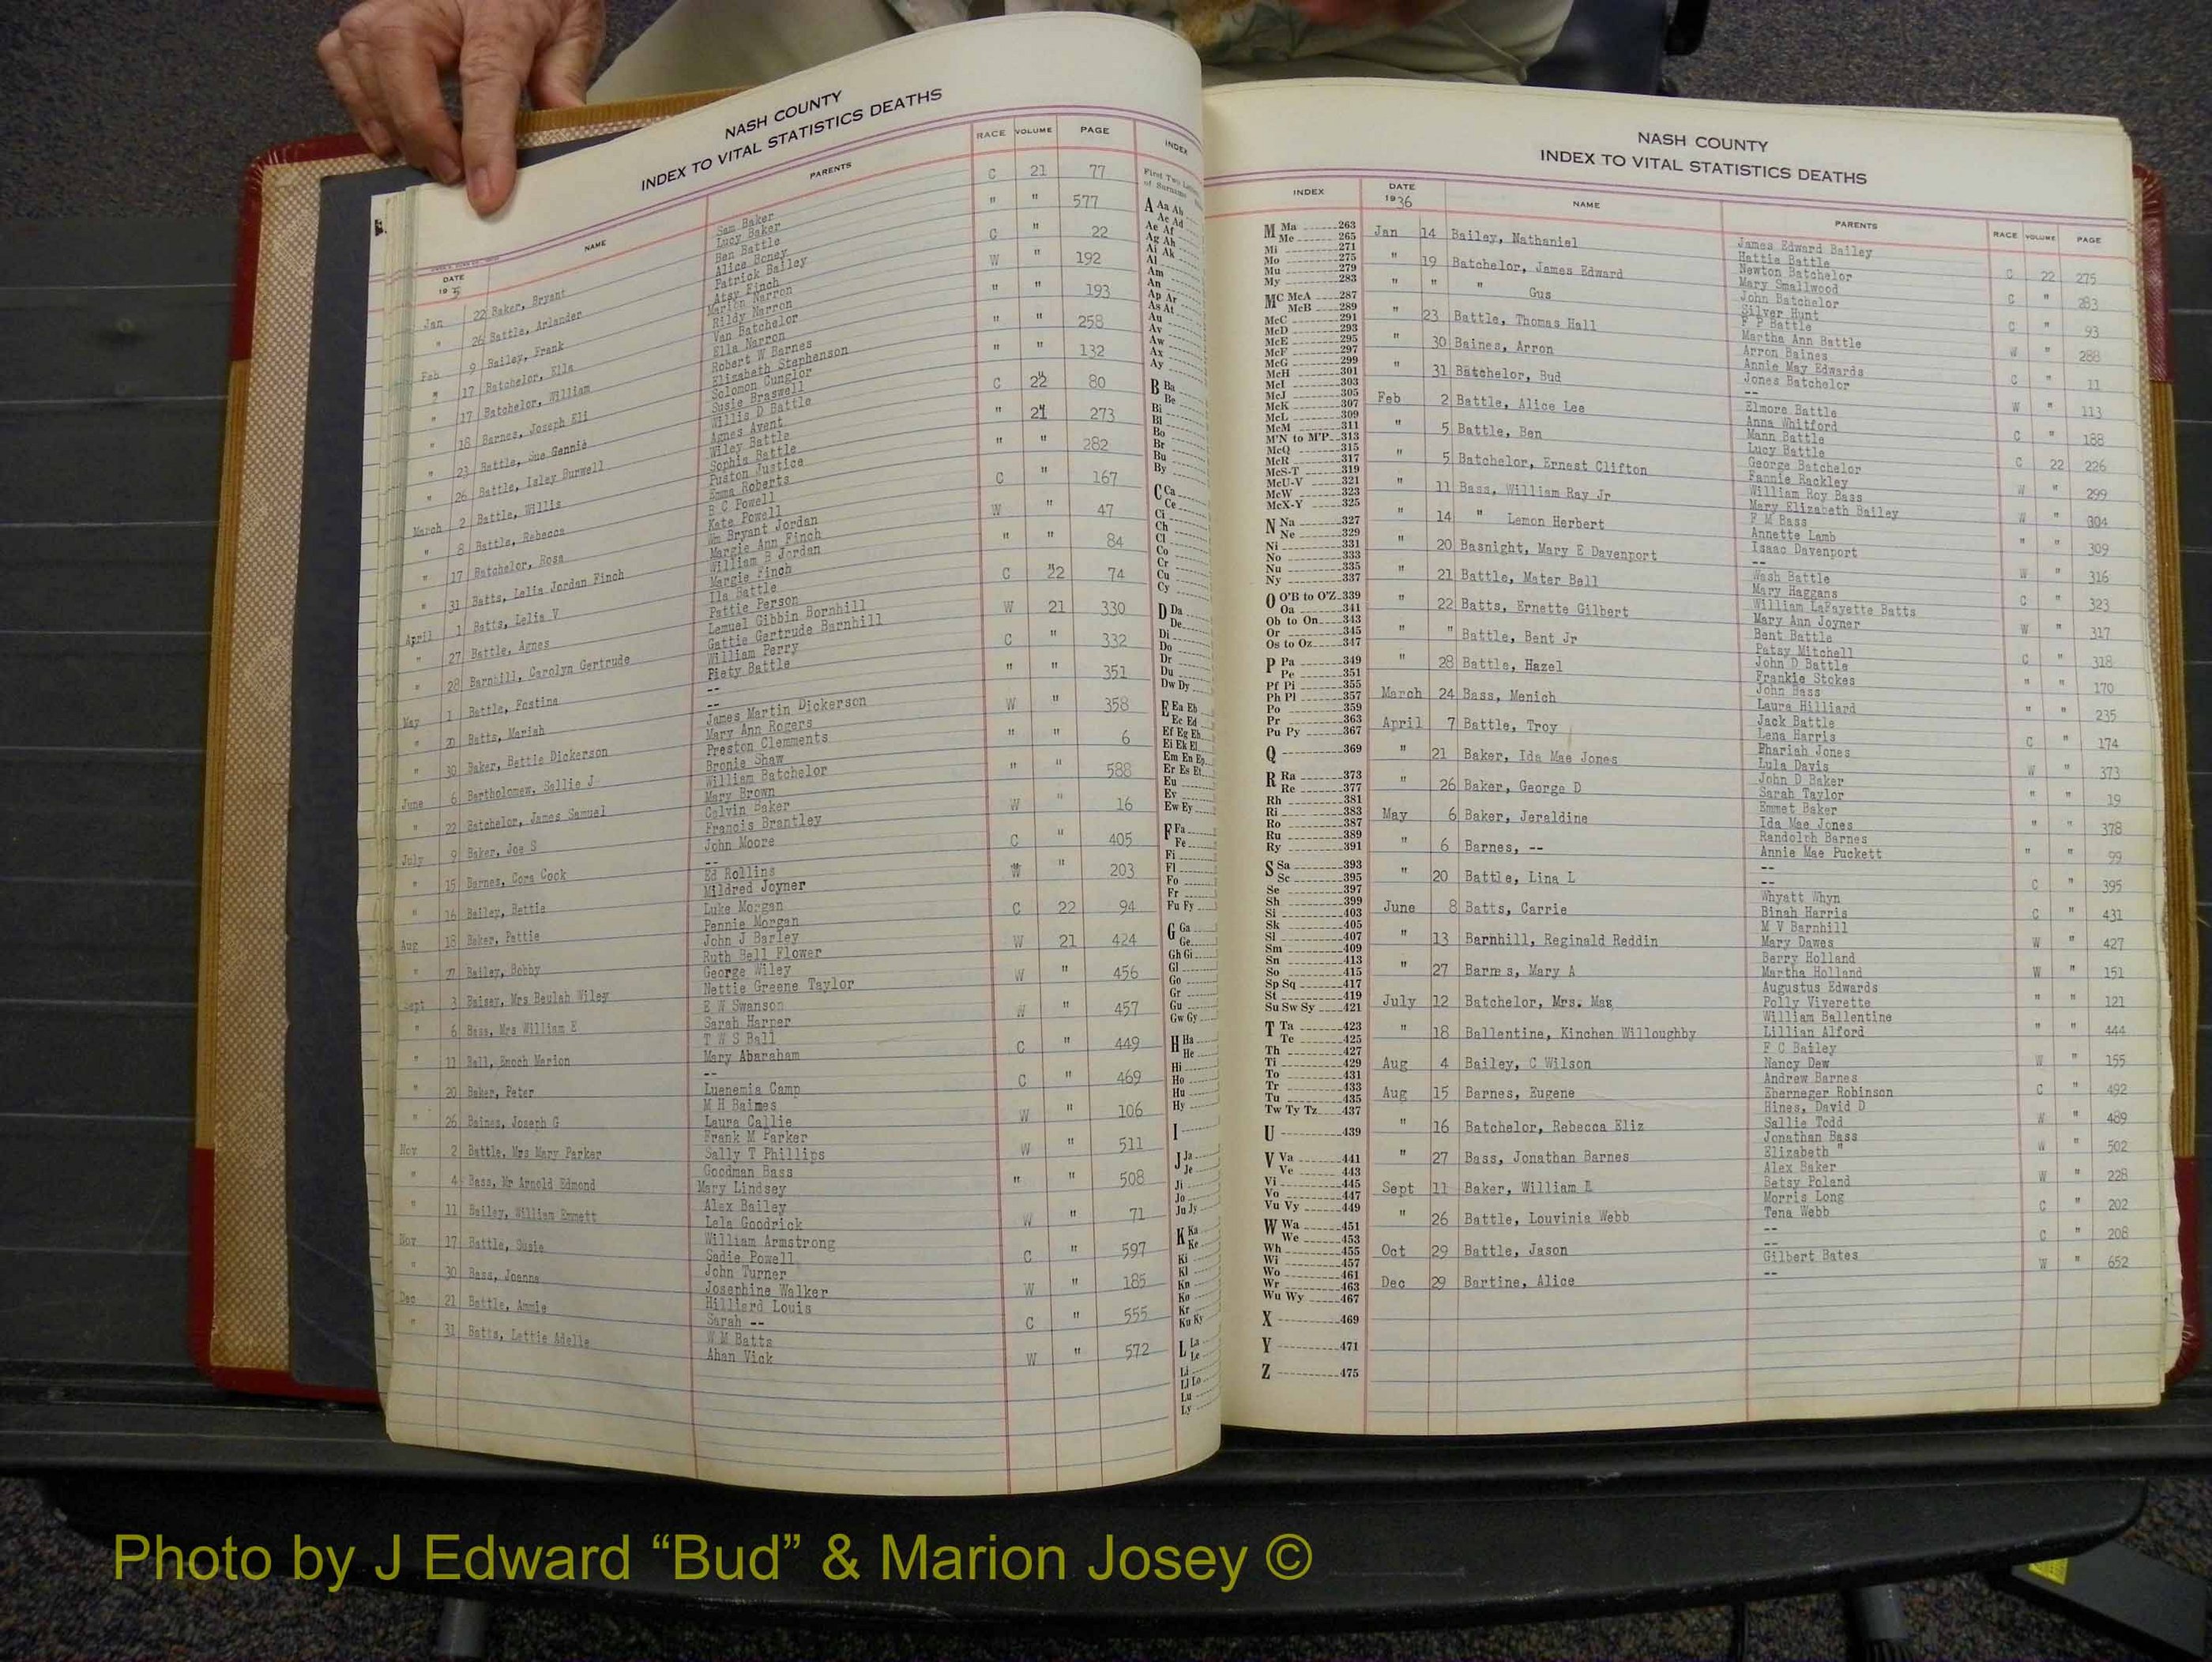 NASH COUNTY
INDEX TO VITAL STATISTICS DEATHS
DATE NAME PARENTS RACE VOLUME PAGE INDEX
Jan 22 Baker, Bryant Sam Baker C 21 77
Lucy Baker
" 26 Battle, Arlander Ben Battle " " 577
Alice Boney
Feb 9 Bailey, Frank Patrick Bailey C " 22
Atsy Finch
" 17 Batchelor, Ella Marion Narron W " 192
Rildy Narron
" 17 Batchelor, William Van Batchelor " " 193
Ella Narron
" 18 Barnes, Joseph Eli Robert W Barnes " " 258
Elizabeth Stephenson
" 23 Battle, Sue Gennie Solomon Cunglor " " 132
Susie Braswell
" 26 Battle, Isley Burwell Willis D Battle C 22 80
Agnes Avent
March 2 Battle, Willis Wiley Battle " 21 273
Sophia Battle
" 8 Battle, Rebecca Puston Justice " " 282
Emma Roberts
" 17 Batchelor, Rosa B C Powell C " 167
Kate Powell
" 31 Batts, Lelia Jordan Finch Wm Bryant Jordan W " 47
Margie Ann Finch
April 1 Batts, Lelia V William B Jordan " " 84
Margie Finch
" 27 Battle, Agnes Ila Battle C 22 74
Pattie Person
" 28 Barnhill, Carolyn Gertrude Lemuel Gibbin Bornhill W 21 330
Gattie Gertrude Barnhill
May 1 Battle, Fostina William Perry C " 332
Piety Battle
" 20 Batts, Mariah -- " " 351
--
" 30 Baker, Bettie Dickerson James Martin Dickerson W " 358
Mary Ann Rogers
June 6 Bartholomew, Sallie J Preston Clemments " " 6
Bronie Shaw
" 22 Batchelor, James Samuel William Batchelor " " 588
Mary Brown
July 9 Baker, Joe S Calvin Baker W " 16
Francis Brantley
" 15 Barnes, Cora Cock John Moore C " 405
--
" 16 Bailey, Bettie Ed Rollins W " 203
Mildred Joyner
Aug 18 Baker, Pattie Luke Morgan C 22 94
Pennie Morgan
" 27 Bailey, Bobby John J Barley W 21 424
Ruth Bell Flower
Sept 3 Baisey, Mrs Beulah Wiley George Wiley W " 456
Nettie Greene Taylor
" 6 Bass, Mrs William E E W Swanson W " 457
Sarah Harper
" 11 Ball, Enoch Marion T W S Ball C " 449
Mary Abaraham
" 20 Baker, Peter -- C " 469
Luenemia Camp
" 26 Baines, Joseph G M H Baimes W " 106
Laura Callie
Nov 2 Battle, Mrs Mary Parker Frank M Parker W " 511
Sally T Phillips
" 4 Bass, Mr Arnold Edmond Goodman Bass " " 508
Mary Lindsey
" 11 Bailey, William Emmett Alex Bailey W " 71
Lala Goodrick
Nov 17 Battle, Susie William Armstrong C " 597
Sadie Powell
" 30 Bass, Joanna John Turner W " 185
Josephine Walker
Dec 21 Battle, Annie Hilliard Louis C " 555
Sarah --
" 31 Batts, Lettie Adelle W M Batts W " 572
Ahan Vick
First Two Letters
of Surname
A Aa Ab
Ac Ad
Ae Af
Ag Ah
Ai Ak
Al
Am
An
Ap Ar
As At
Au
Av
Aw
Ax
Ay
B Ba
Be
Bi
Bl
Bo
Br
Bu
By
C Ca
Ce
Ci
Ch
Cl
Co
Cr
Cu
Cy
D Da
De
Di
Do
Dr
Du
Dw Dy
E Ea Eb
Ec Ed
Ef Eg Eh
Ei Ek El
Em En Ep
Er Es Et
Eu
Ev
Ew Ey
F Fa
Fe
Fi
Fl
Fo
Fr
Fu Fy
G Ga
Ge
Gh Gi
Gl
Go
Gr
Gu
Gw Gy
H Ha
He
Hi
Ho
Hu
Hy
I
J Ja
Je
Ji
Jo
Ju Jy
K Ka
Ke
Ki
Kl
Kn
Ko
Kr
Ku Ky
L La
Le
Li
Ll Lo
Lu
Ly
NASH COUNTY
INDEX TO VITAL STATISTICS DEATHS
INDEX DATE NAME PARENTS RACE VOLUME PAGE
1936
M Ma 263
Me 265
Mi 271
Mo 275
Mu 279
My 283
MC McA 287
McB 289
McC 291
McD 293
McE 295
McF 297
McG 299
McH 301
McI 303
McJ 305
McK 307
McL 309
McM 311
M'N to M'P 313
McQ 315
McR 317
McS-T 319
McU-V 321
McW 323
McX-Y 325
N Na 327
Ne 329
Ni 331
No 333
Nu 335
Ny 337
O O'B to O'Z 339
Oa 341
Ob to On 343
Or 345
Os to Oz 347
P Pa 349
Pe 351
Pf Pi 355
Ph Pl 357
Po 359
Pr 363
Pu Py 367
Q 369
R Ra 373
Re 377
Rh 381
Ri 383
Ro 387
Ru 389
Ry 391
S Sa 393
Sc 395
Se 397
Sh 399
Si 403
Sk 405
Sl 407
Sm 409
Sn 413
So 415
Sp Sq 417
St 419
Su Sw Sy 421
T Ta 423
Te 425
Th 427
Ti 429
To 431
Tr 433
Tu 435
Tw Ty Tz 437
U 439
V Va 441
Ve 443
Vi 445
Vo 447
Vu Vy 449
W Wa 451
We 453
Wh 455
Wi 457
Wo 461
Wr 463
Wu Wy 467
X 469
Y 471
Z 475
Jan 14 Bailey, Nathaniel James Edward Bailey C 22 275
Hattie Battle
" 19 Batchelor, James Edward Newton Batchelor C " 283
Mary Smallwood
" " " Gus John Batchelor C " 93
Silver Hunt
" 23 Battle, Thomas Hall F P Battle W " 288
Martha Ann Battle
" 30 Baines, Arron Arron Baines C " 11
Annie May Edwards
" 31 Batchelor, Bud Jones Batchelor W " 113
--
Feb 2 Battle, Alice Lee Elmore Battle C " 188
Anna Whitford
" 5 Battle, Ben Mann Battle C 22 226
Lucy Battle
" 5 Batchelor, Ernest Clifton George Batchelor W " 299
Fannie Rackley
" 11 Bass, William Ray Jr William Roy Bass W " 304
Mary Elizabeth Bailey
" 14 " Lemon Herbert F M Bass " " 309
Annette Lamb
" 20 Basnight, Mary E Davenport Isaac Davenport W " 316
--
" 21 Battle, Mater Bell Wash Battle C " 323
Mary Haggans
" 22 Batts, Ernette Gilbert William LaFayette Batts W " 317
Mary Ann Joyner
" " Battle, Bent Jr Bent Battle C " 318
Patsy Mitchell
" 28 Battle, Hazel John D Battle " " 170
Frankie Stokes
March 24 Bass, Menich John Bass " " 235
Laura Hilliard
April 7 Battle, Troy Jack Battle C " 174
Lena Harris
" 21 Baker, Ida Mae Jones Phariah Jones W " 373
Lula Davis
" 26 Baker, George D John D Baker " " 19
Sarah Taylor
May 6 Baker, Jeraldine Emmet Baker " " 378
Ida Mae Jones
" 6 Barnes, -- Randolph Barnes " " 99
Annie Mae Puckett
" 20 Battle, Lina L -- C " 395
--
June 8 Batts, Carrie Whyatt Whyn C " 431
Binah Harris
" 13 Barnhill, Reginald Reddin M V Barnhill W " 427
Mary Dawes
" 27 Barnes, Mary A Berry Holland W " 151
Martha Holland
July 12 Batchelor, Mrs. Mag Augustus Edwards " " 121
Polly Viverette
" 18 Ballentine, Kinchen Willoughby William Ballentine " " 444
Lillian Alford
Aug 4 Bailey, C Wilson F C Bailey W " 155
Nancy Dew
Aug 15 Barnes, Eugene Andrew Barnes C " 492
Eberneger Robinson
" 16 Batchelor, Rebecca Eliz Hines, David D W " 489
Sallie Todd
" 27 Bass, Jonathan Barnes Jonathan Bass W " 502
Elizabeth "
Sept 11 Baker, William E Alex Baker W " 228
Betsy Poland
" 26 Battle, Louvinia Webb Morris Long C " 202
Tena Webb
Oct 29 Battle, Jason -- C " 208
--
Dec 29 Bartine, Alice Gilbert Bates W " 652
--
Photo by J Edward “Bud” & Marion Josey ©